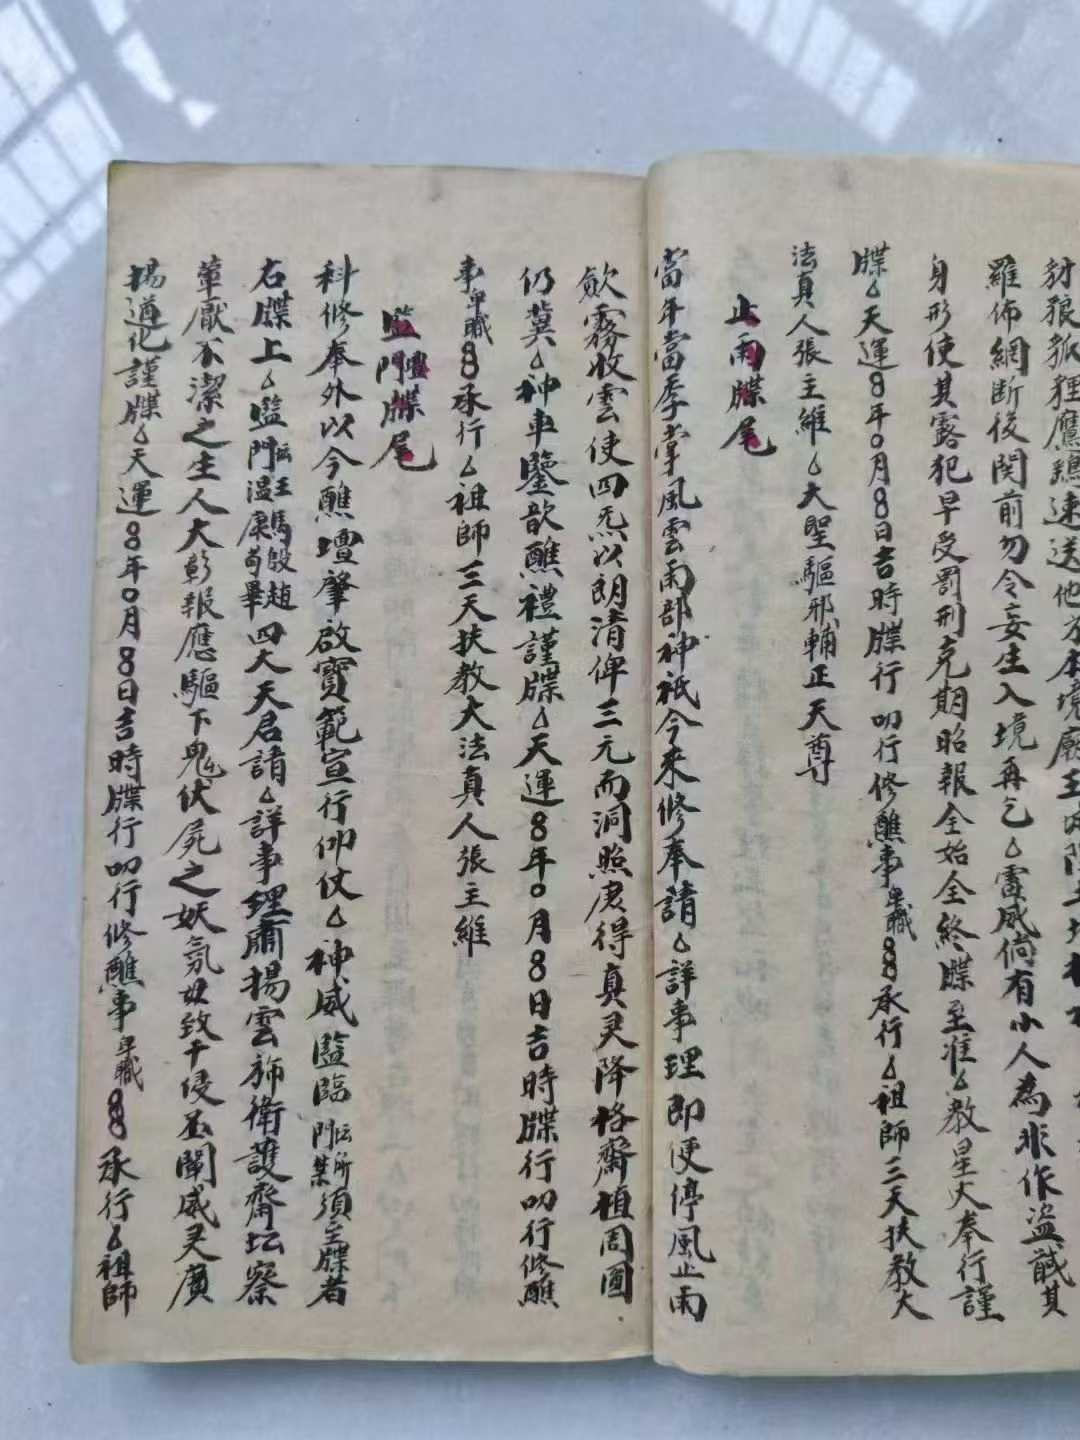 豺狼狐狸鷹鸇速送他方本境廟王城隍土地
羅佈網斷後関前勿令妄生入境再乞△雷威倘有小人為非作盜誠其
身形使其露犯早受罰刑克期昭報全始全終牒至准△教星火奉行謹
牒△天運8年0月8日吉時牒行叨行修醮事卑職88承行△祖師三天扶教大
法真人張主維△大聖驅邪輔正天尊
止雨牒尾
當年當季掌風雲雨部神祇今来修奉請△詳事理即便停風止雨
歛霧收雲使四炁以朗清俾三元而洞照庻得真灵降格齋植周圓
仍冀△神車鑒歆醮禮謹牒△天運8年0月8日吉時牒行叨行修醮
事卑職88承行△祖師三天扶教大法真人張主維
監門壇牒尾
科修奉外以今醮壇肇啟寶範宣行仰仗△神威監臨門禁坛所須至牒者
右牒上△監門坛王馬殷趙温康苟畢四大天君請△詳事理肅揚雲斾衛護齋坛察
葷厭不潔之生人大彰報應驅下鬼伏屍之妖氛毋致干侵丕闡威灵廣
揚道化謹牒△天運8年0月8日吉時牒行叨行修醮事卑職88承行△祖師